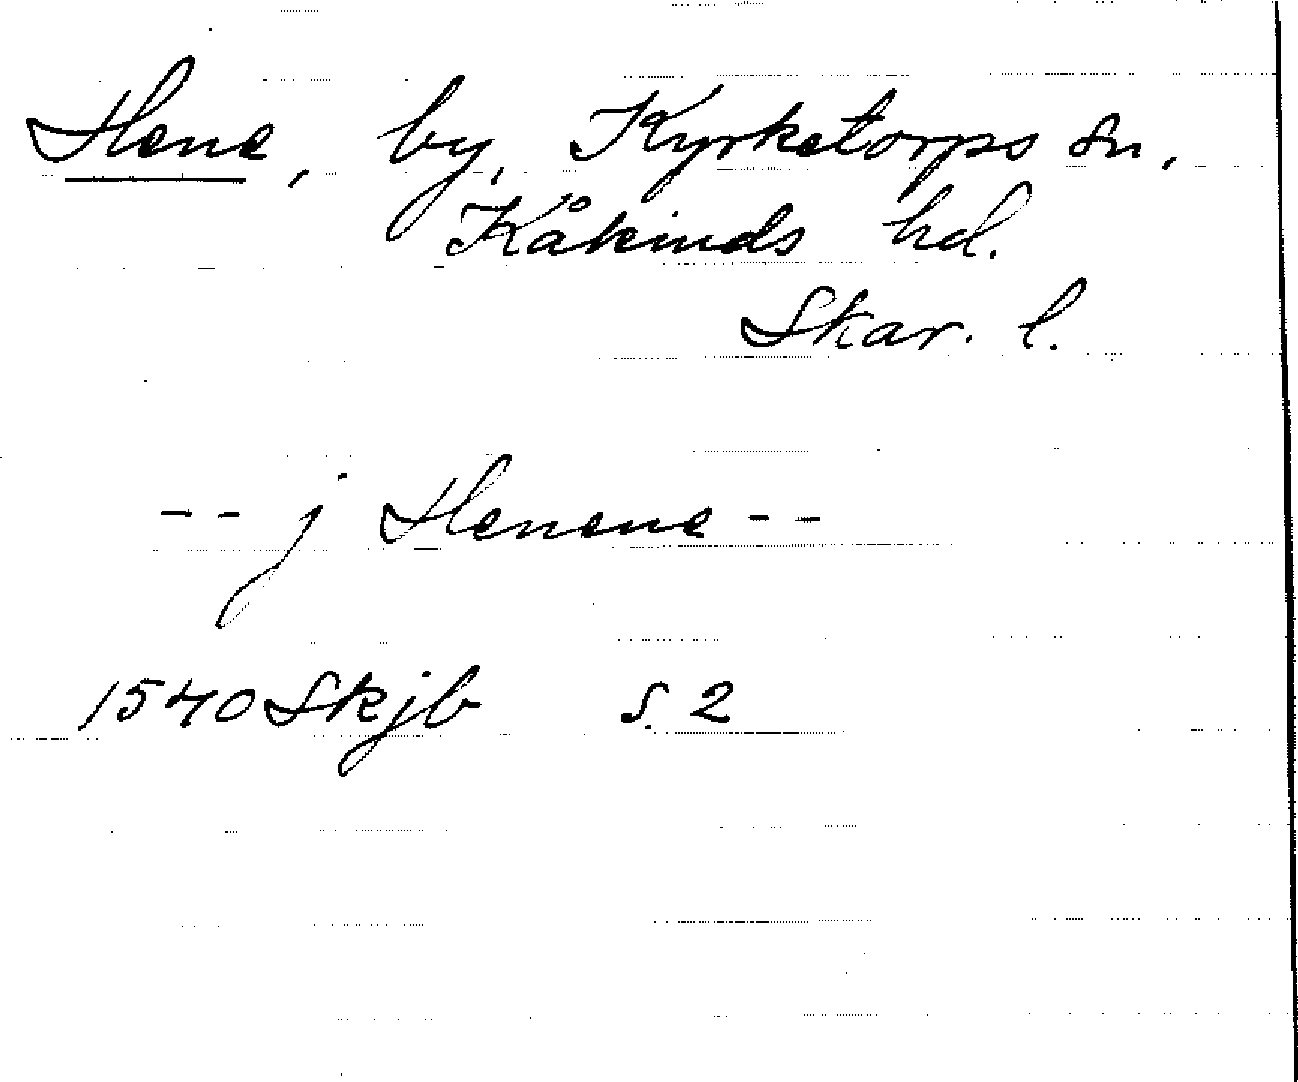 Hene, by, Kyrketorps sn,
Kåkinds hd.
Skar. l.
-- j Henene --
1540 Skjb s. 2